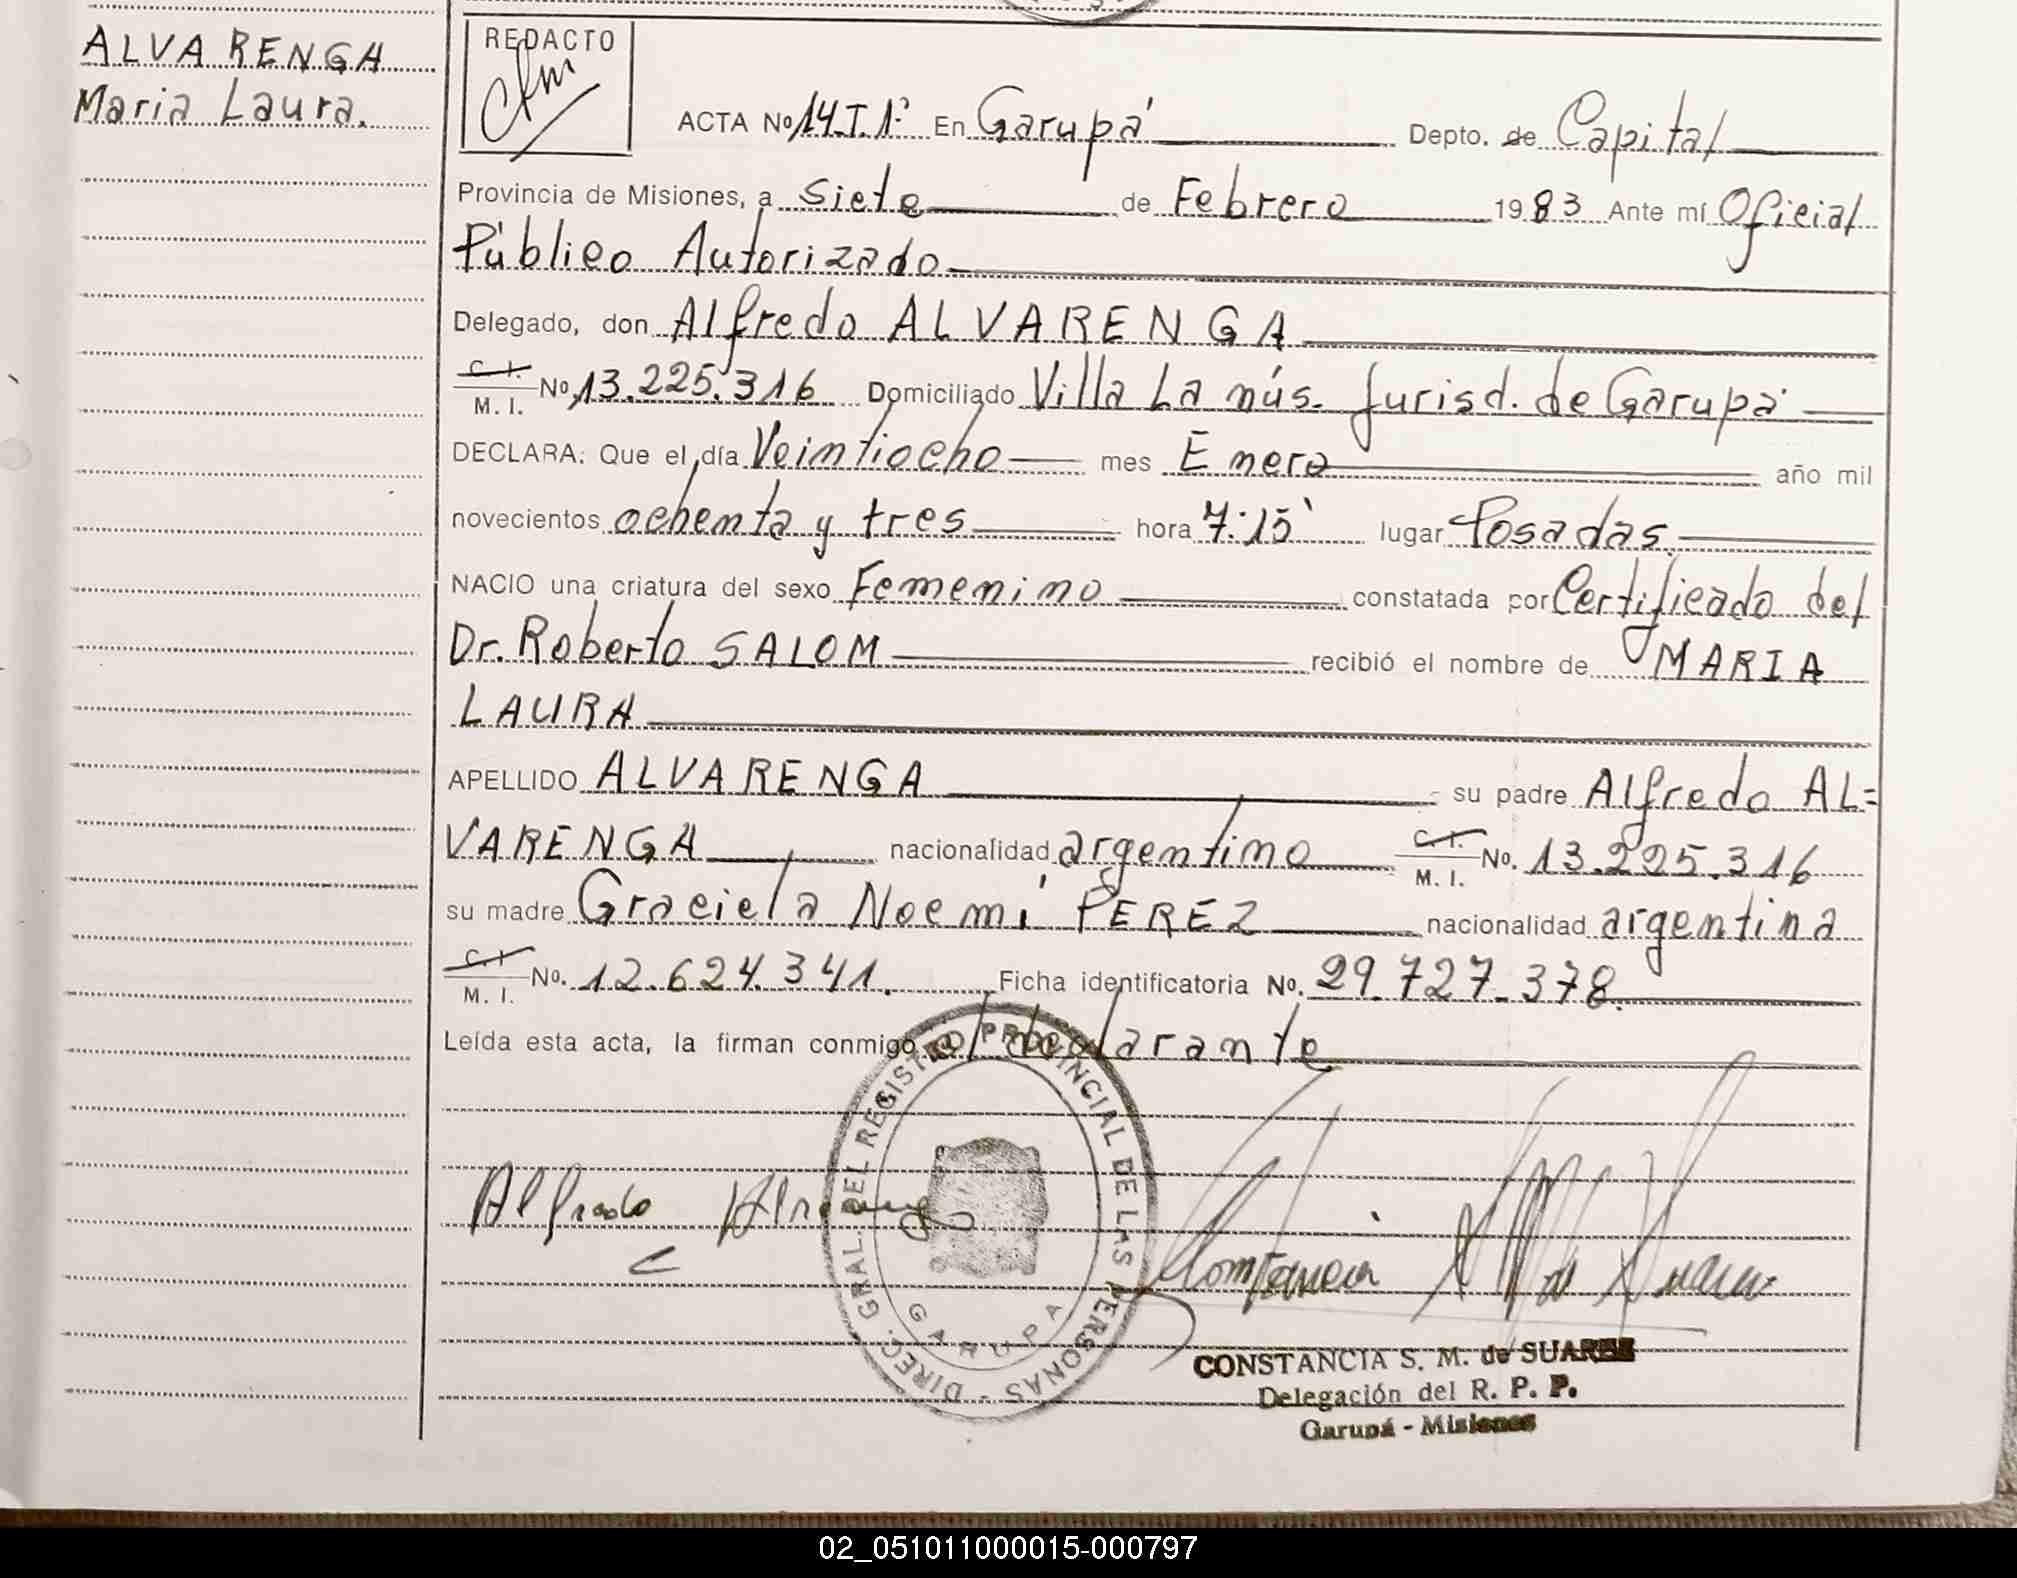 ALVARENGA
Maria Laura.
REDACTO
ACTA No 14.T.1º En Garupá Depto. de Capital
Provincia de Misiones, a siete de Febrero 1983 Ante mí Oficial
Público Autorizado
Delegado, don Alfredo ALVARENGA
C. I. M. I. No 13.225.316 Domiciliado Villa Lanús. Jurisd. de Garupá
DECLARA: Que el día Veintiocho mes Enero año mil
novecientos ochenta y tres hora 7:15 lugar Posadas
NACIO una criatura del sexo Femenino constatada por Certificado del
Dr. Roberto SALOM recibió el nombre de MARIA
LAURA
APELLIDO ALVARENGA su padre Alfredo AL=
VARENGA nacionalidad argentino C. I. M. I. No. 13.225.316
su madre Graciela Noemí PEREZ nacionalidad argentina
C. I. M. I. No. 12.624.341. Ficha identificatoria No. 29.727.378
Leída esta acta, la firman conmigo el declarante
DIREC. GRAL. DEL REGISTRO PROVINCIAL DE LAS PERSONAS -
GARUPA
Alfredo
Constancia
CONSTANCIA S. M. de SUAREZ
Delegación del R. P. P.
Garupá - Misiones
02_051011000015-000797